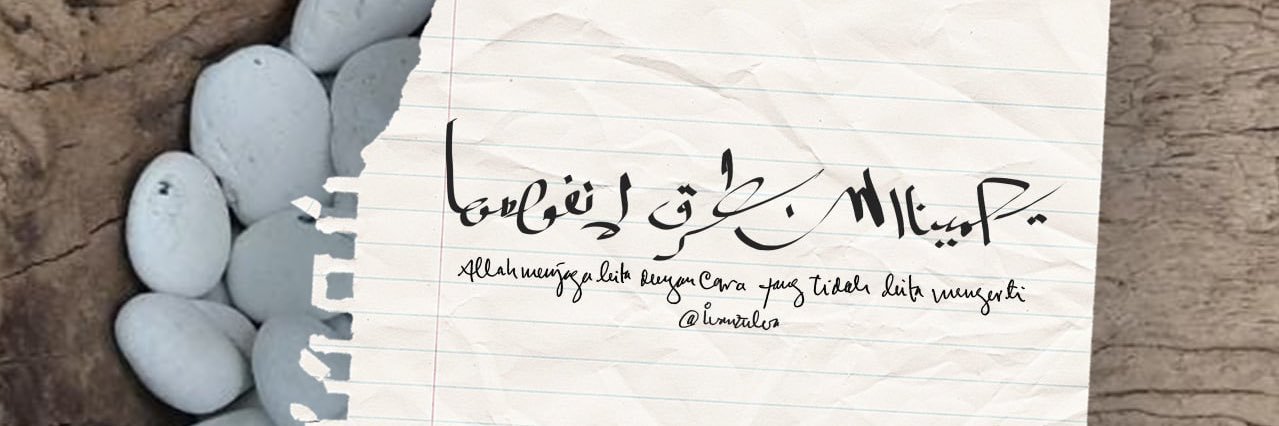 يحمينا الله بطرق لا نفهمها
Allah menjaga kita dengan Cara yang tidak kita mengerti